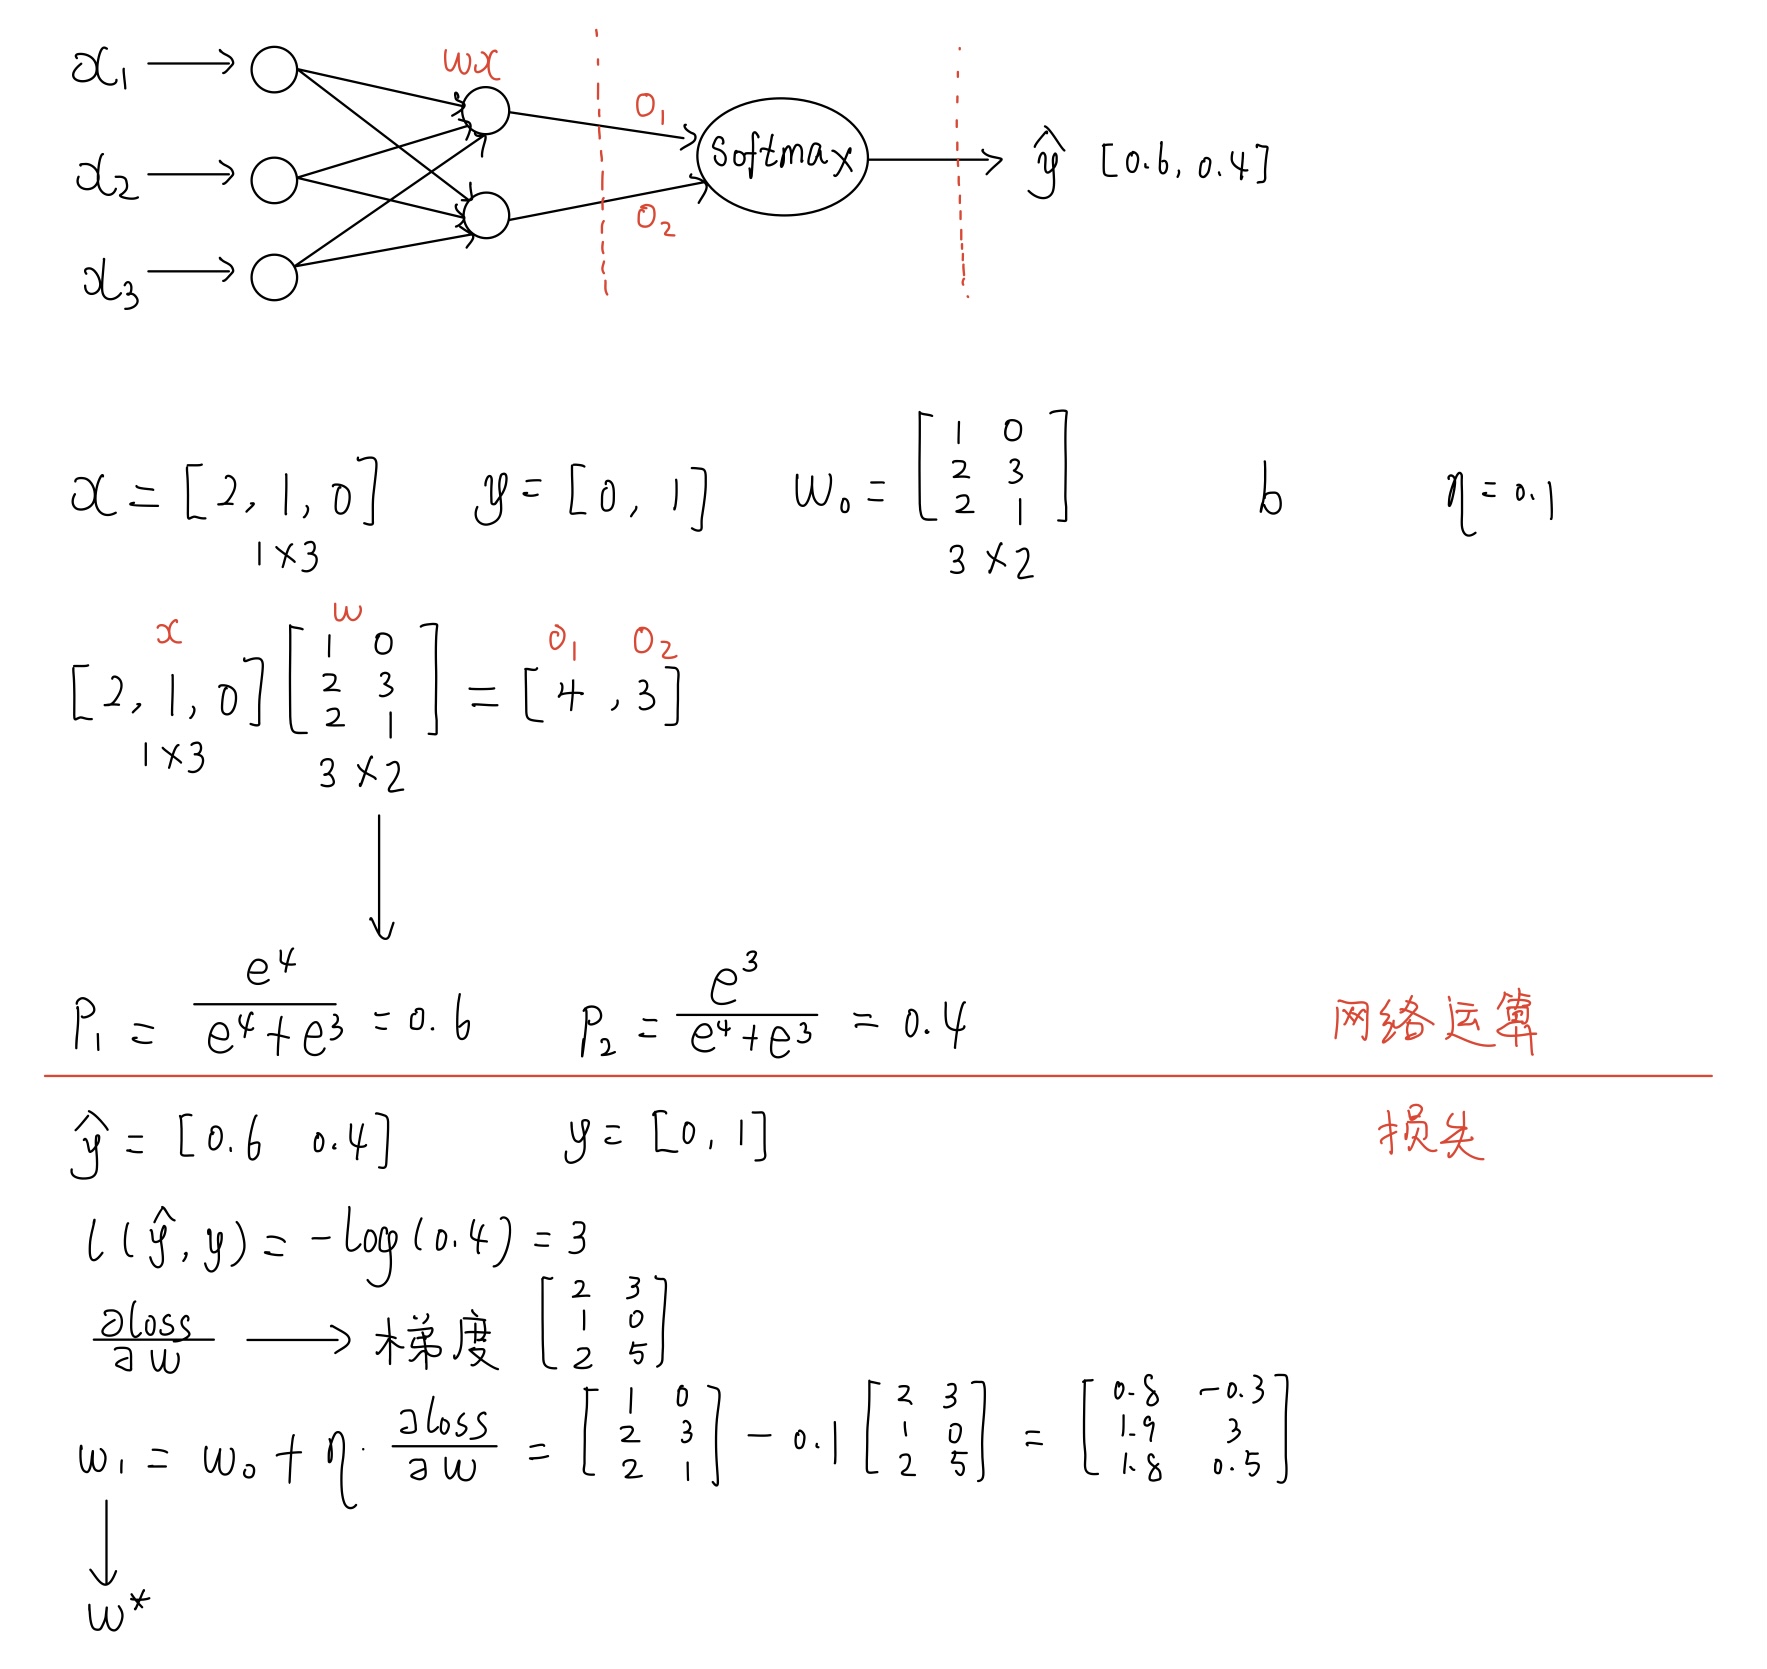 x₁
wx
o₁
softmax
ŷ [0.6, 0.4]
x₂
o₂
x₃
x = [2, 1, 0] y = [0, 1] w₀ = [1 0
2 3
2 1] b η = 0.1
1×3 3×2
x w o₁ o₂
[2, 1, 0] [1 0
2 3
2 1] = [4 , 3]
1×3 3×2
P₁ = e⁴ / (e⁴ + e³) = 0.6 P₂ = e³ / (e⁴ + e³) = 0.4 网络运算
ŷ = [0.6 0.4] y = [0, 1] 损失
l(ŷ, y) = -log(0.4) = 3
∂loss / ∂w → 梯度 [2 3
1 0
2 5]
w₁ = w₀ + η · ∂loss / ∂w = [1 0
2 3
2 1] - 0.1 [2 3
1 0
2 5] = [0.8 -0.3
1.9 3
1.8 0.5]
w*